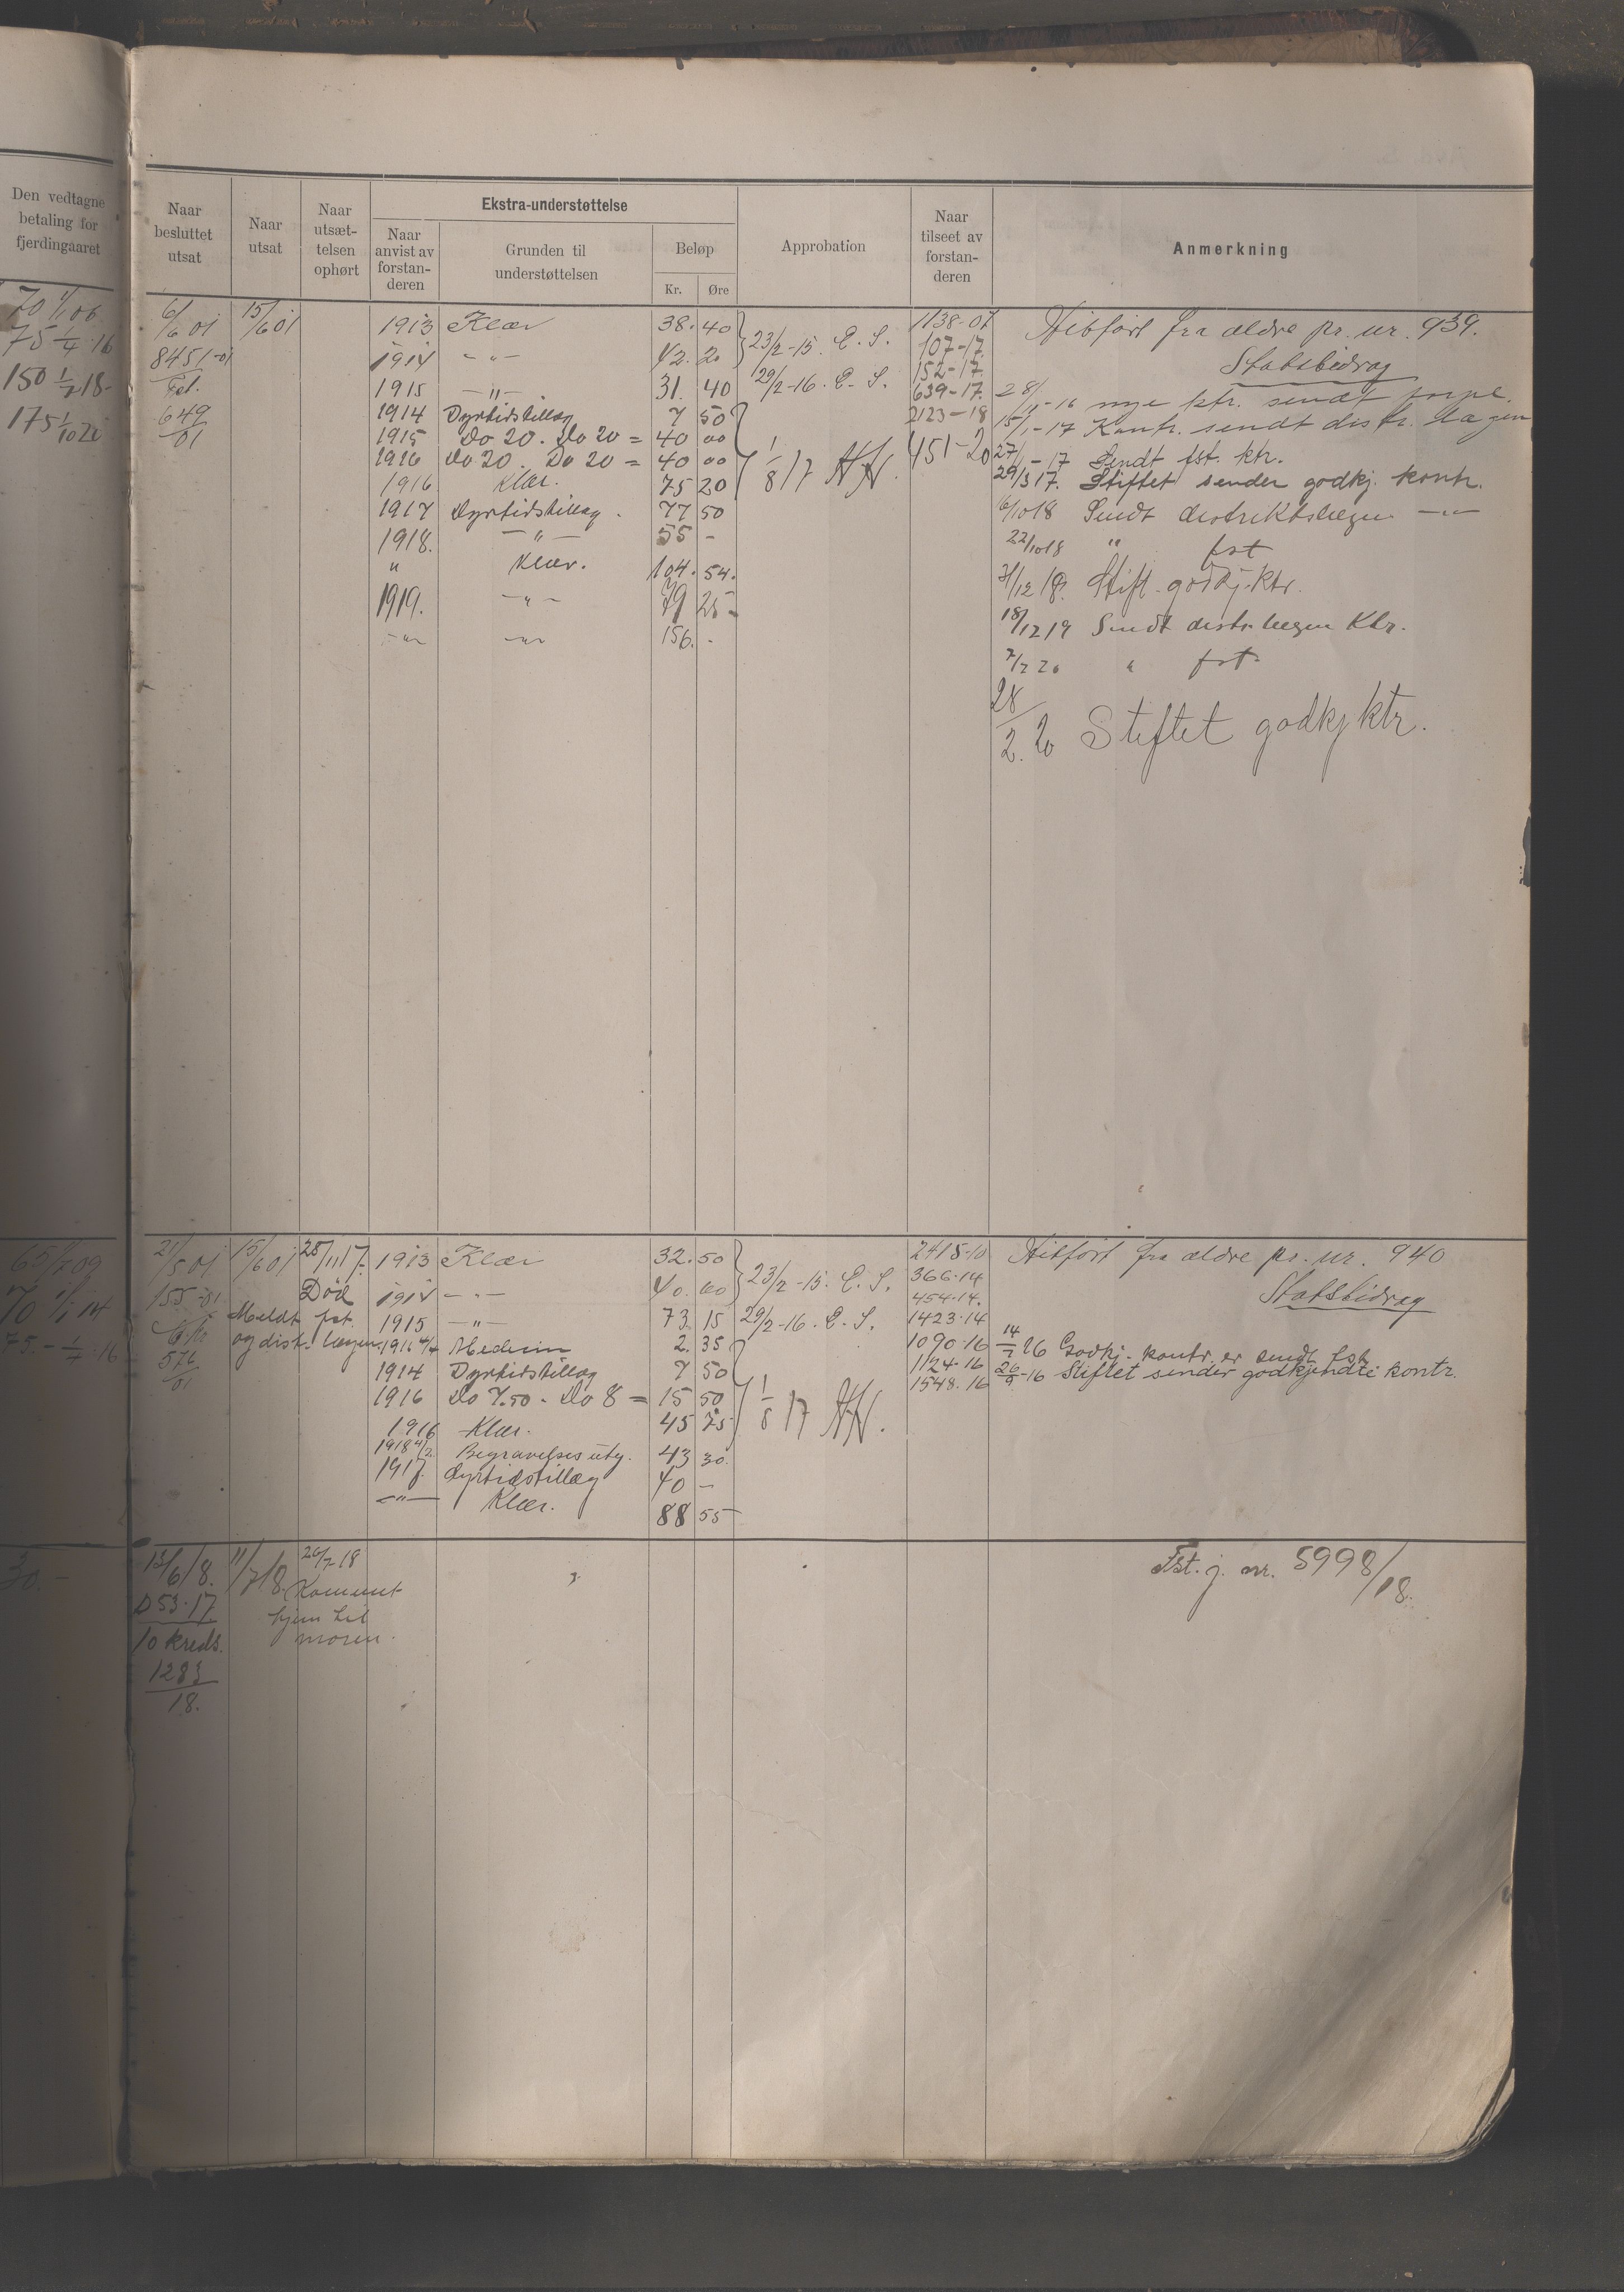 Den vedtagne
betaling for
fjerdingaaret
Naar
besluttet
utsat
Naar
utsat
Naar
utsæt-
telsen
ophørt
Ekstra-understøttelse
Naar
anvist av
forstan-
deren
Grunden til
understøttelsen
Beløp
Kr. Øre
Approbation
Naar
tilseet av
forstan-
deren
Anmerkning
70 1/1 06
75 1/4 16
150 1/7 18
175 1/10 20
6/6 01 15/6 01
8451-01
Fst.
649
01
1913 Klær 38.40
1914 - " - 42. 20
1915 - " - 31. 40
1914 Dyrtidstillæg 7 50
1915 Do 20. Do 20 = 40 00
1916 Do 20. Do 20 = 40 00
1916 Klær. 75 20
1917 Dyrtidstillæg. 77 50
1918. - " - 55 -
" Klær. 104. 54.
1919. - " - 79 25
- " - - " - 156. -
23/2-15. E. S.
29/2-16. E. S.
1/8 17 AH.
1138-01
107-17.
152-17.
639-17.
2123-18
451-20
Hitført fra ældre pr. nr. 939.
Statsbidrag
28/11-16 nye ktr. sendt forpl.
15/1-17 Kontr. sendt distr. lægen
27/1-17 Sendt fst. ktr.
29/3 17. Stiftet sender godkj. kontr.
6/10 18 Sendt distriktslægen - " -
22/10 18 " fst
31/12 18. Stift. godkj. ktr.
18/12 19 Sendt distr. lægen Ktr.
7/2 20 " fst
28/2. 20 Stiftet godkj ktr.
65 1/7 09
70 1/1 14
75.- 1/4.16
21/5 01 15/6 01 28/11 17.
155-01 Død
Meldt fst.
og dist. lægen
576
01
1913 Klær 32.50
1914 - " - 40. 00
1915 - " - 73. 15
1916 4/4 Medicin 2. 35
1914 Dyrtidstillæg 7 50
1916 Do 7.50 - Do 8 = 15 50
1916 Klær. 45 75
1918 4/2 Begravelses utg. 43 30.
1917. Dyrtidstillæg 40 -
- " - Klær. 88 55
23/2-15. E. S.
29/2-16. E. S.
1/8 17 AH.
2418-10
366-14
454-14.
1423-14
1090-16
1124-16
1548.16
Hitført fra ældre pr. nr. 940
Statsbidrag
14/7 16 Godkj. kontr. er sendt fst.
26/9-16 Stiftet sender godkjendte kontr.
30.-
13/6 18. 11/7 18. 26/7 18
D 53-17 Kommet
hjem til
moren.
10 Kreds.
1283
18.
Fst. j. nr. 5998/18.